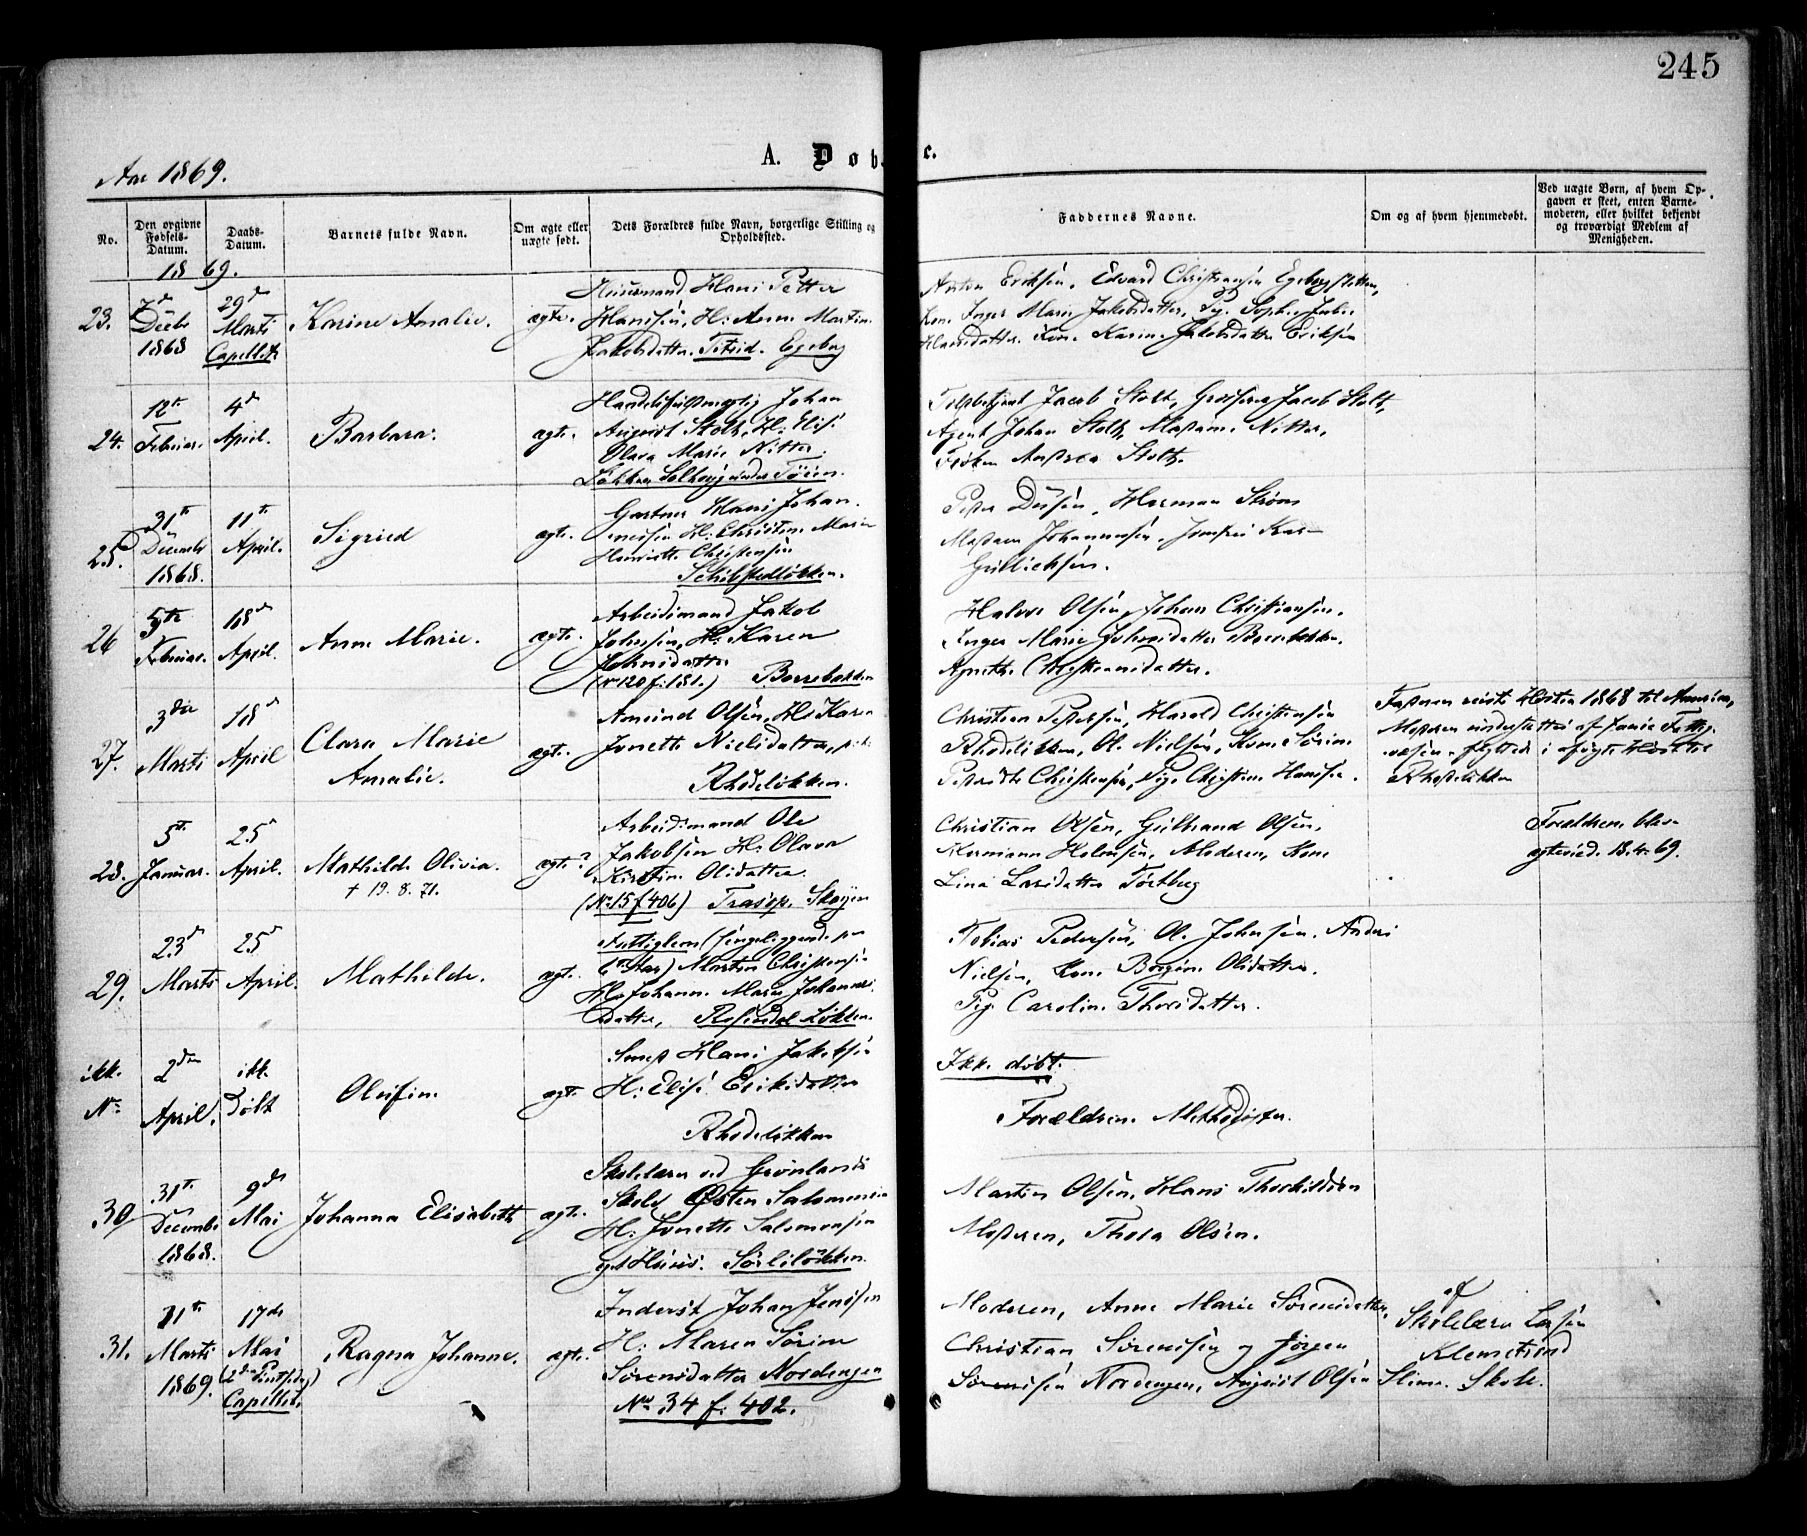 245
Aar 1869.
A. Døb
e.
No.
Den opgivne Fødsels-Datum.
Daabs-Datum.
Barnets fulde Navn.
Om ægte eller uægte født.
Dets Forældres fulde Navn, borgerlige Stilling og Opholdssted.
Faddernes Navne.
Om og af hvem hjemmedøbt.
Ved uægte Børn, af hvem Opgaven er skeet, enten Barnemoderen, eller hvilket bekjendt og troværdigt Medlem af Menigheden.
1869.
23.
7d Decbr 1868
29d Marts Capellet
Karine Amalie.
ægte.
Huusmand Hans Petter
Hanssen, H: Anne Martin
Jakobsdatter. Egeberg
Anton Eriksen, Edvard Christiansen Egeberg
Kone Inger Marie Jakobsdatter, Pige Sophie
Hansdatter. Kone Karin Jakobsdatter Eriksen
24.
12te Februar.
4d April.
Barbara.
ægte.
Johan
August Stoltz, H: Elis.
Olava Marie Nitter.
Løkken Solhoug under Tøien.
Jacob Stolt, Grosserer Jacob Stolt,
Agent Johan Stolt, Madam Nitter,
Frøken Andrea Stoltz.
25.
31te Decembr 1868.
11te April.
Sigried
ægte.
Gartner Hans Johan
H: Christine Marie
Henriette Christensen
Schibstedløkken.
Herman Strøm
Madam Johannesen, Jomfru
Gulbichsen.
26
5te Februar.
18d April.
Anne Marie.
ægte.
Arbeidsmand Jakob
Johnsen, H: Karen
Johnsdatter
(No 120 f: 181.) Borrebakken
Halvor Olsen, Johan Christiansen.
Inger Marie Johnsdatter
Agnethe Christiansdatter.
27.
3die Marts
18d April
Clara Marie
Amalie.
ægte.
Amund Olsen, H: Karen
Jonette Nielsdatter,
Rhodeløkken.
Christian Pedersen, Harald Christensen
Rhodeløkken, Ol. Nielsen, Kone Sørine
Christensen, Pige Christine Hansen.
Faderen reiste Høsten 1868 til Amerika,
Moderen understøttes af
flyttede i Høst til
Rhodeløkken
28.
5te Januar.
25d April.
Mathilde Olivia.
† 19. 8. 71.
ægte?
Arbeidsmand Ole
Jakobsen H: Olava
Kirstine Olsdatter.
(No 15 f 406) Trasop. Skøyen
Christian Olsen, Gulbrand Olsen,
Hermann Halvorsen, Moderen, Kone
Lina Larsdatter Tørtberg
Forældrene blev
ægteviet 18. 4. 69.
29.
23d Marts
25d April.
Mathilde.
ægte.
Fattiglem (sengeliggende paa
6te Aar) Martin Christensen
H: Johanne Marie Johannes
datter, Rosendal Løkken.
Tobias Pedersen, Ol. Johnsen. Anders
Nielsen, Kone Olsdatter.
Pige Caroline Thorsdatter.
ikke No
2den April.
ikke Døbt
Olufine.
ægte.
Smed Hans Jakobsen
H: Elise Eriksdatter
Rhodeløkken
Ikke døbt.
Forældrene Methodister.
30
31te Decembr 1868.
9de Mai
Johanna Elisabeth
ægte.
Skolelærer ved Grønlands
Skole Østen Salomonsen
H: Jonette Salomonsen
Sørliløkken.
Martin Olsen, Hans Thorkildsen
Moderen, Thora Olsen.
31.
11te Marts 1869.
17de Mai (2den Pintsedag) Capellet.
Ragna Johanne.
ægte.
Inderst Johan Jenssen
H: Maren Sørine
Sørensdatter Nordengen
No 34 f. 402.
Moderen, Anne Marie Sørensdatter,
Christian Sørenssen og Jørgen
Sørenssen Nordengen, August Olsen
af
Skolelærer Larsen
Klemetsrud
Skole.